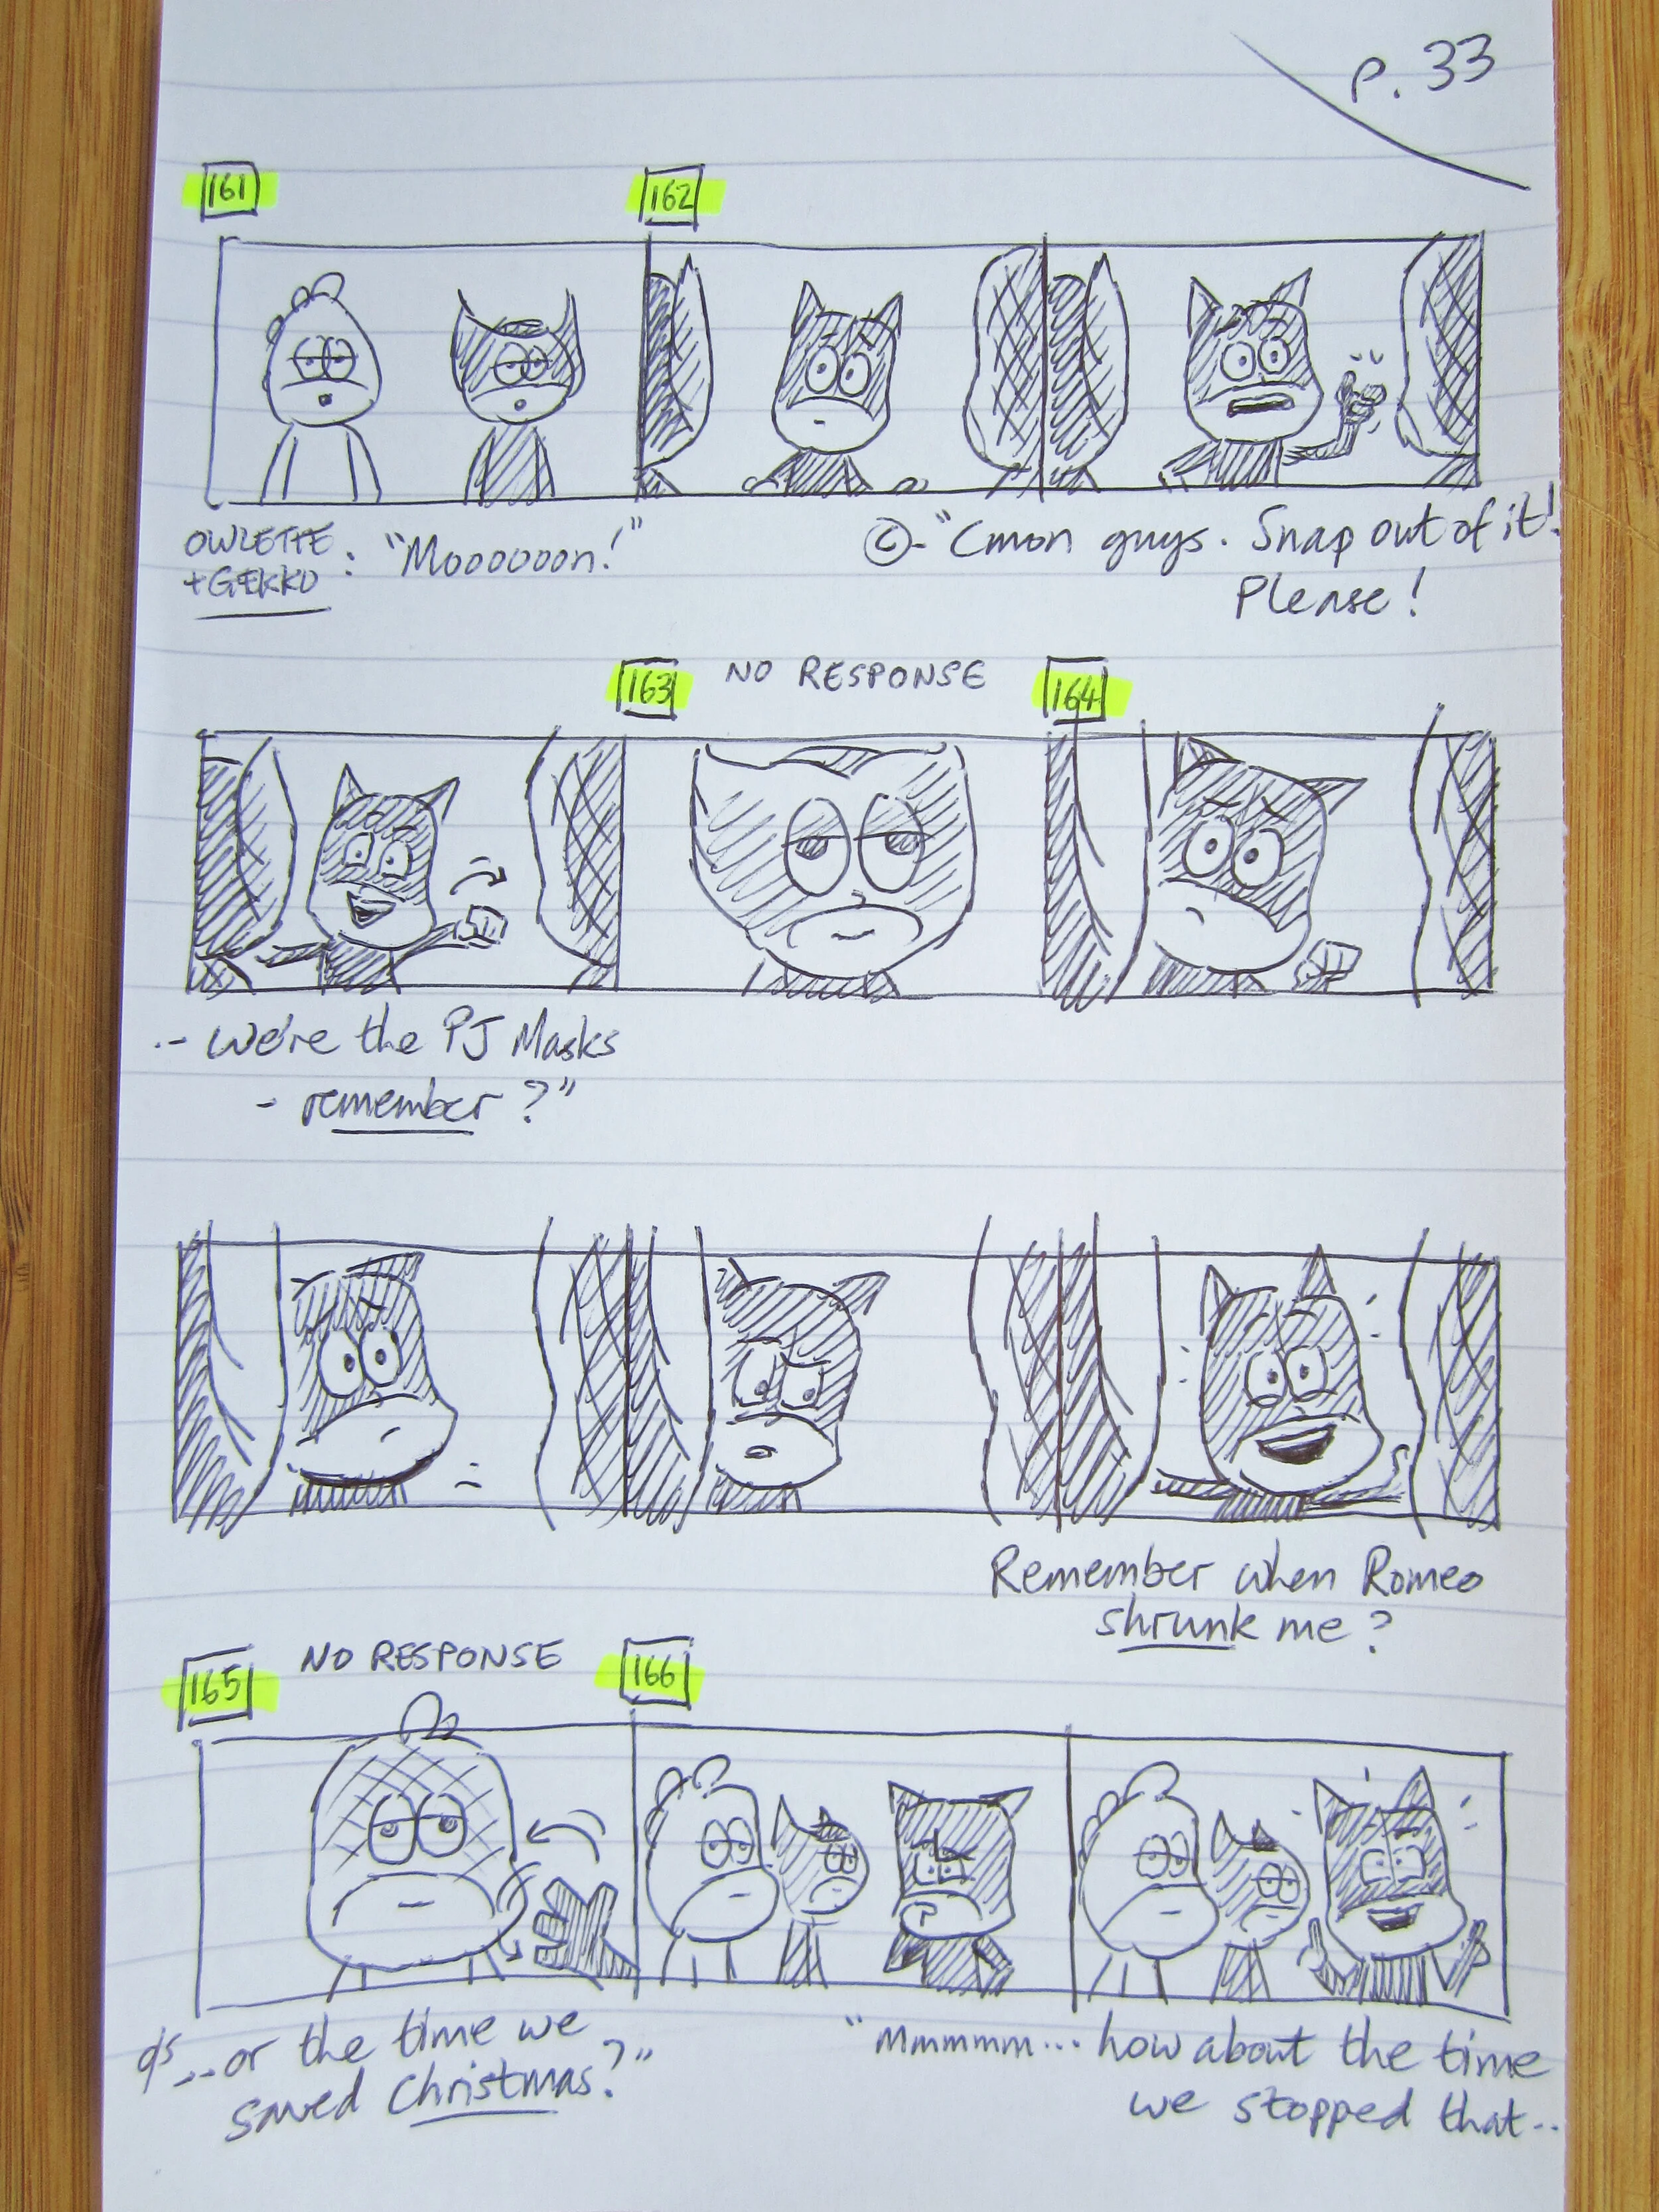 p. 33
161
162
OWLETTE
+GEKKO : "Moooooon!"
©- "Cmon guys. Snap out of it!
Please!
163
NO RESPONSE
164
.- we're the PJ Masks
- remember?"
Remember when Romeo
shrunk me?
165
NO RESPONSE
166
o/s ...or the time we
saved Christmas?"
"Mmmmm... how about the time
we stopped that..